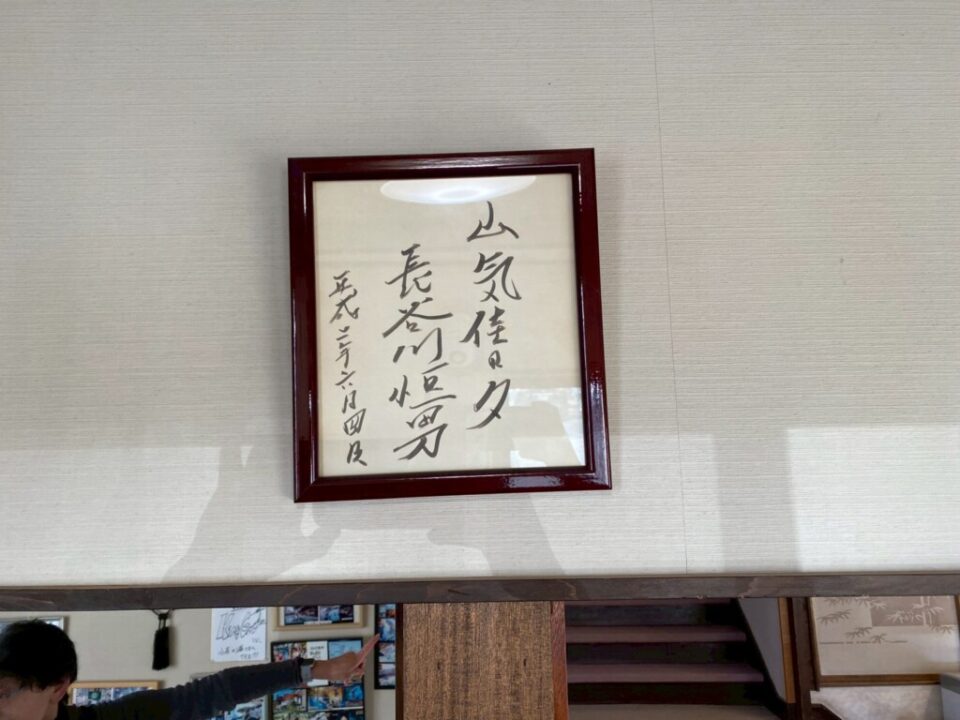 山気佳日夕
長谷川恒男
平成二年六月四日